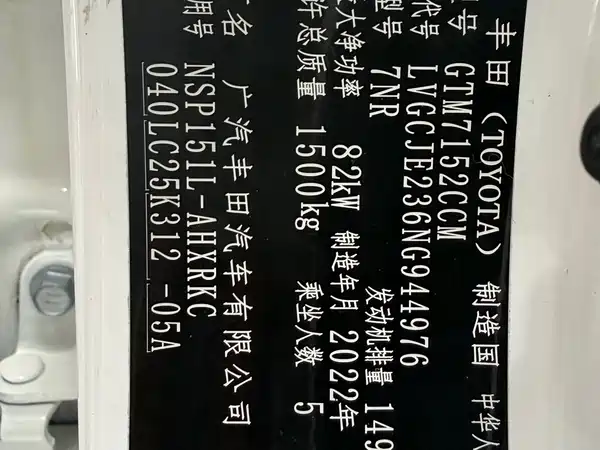 丰田 (TOYOTA) 制造国 中华人
号 GTM7152CCM
代号 LVGCJE236NG944976
型号 7NR 发动机排量 149
大净功率 82kW 制造年月 2022年
许总质量 1500kg 乘坐人数 5
名 广汽丰田汽车有限公司
用号 NSP151L-AHXRKC
040LC25K312 -05A